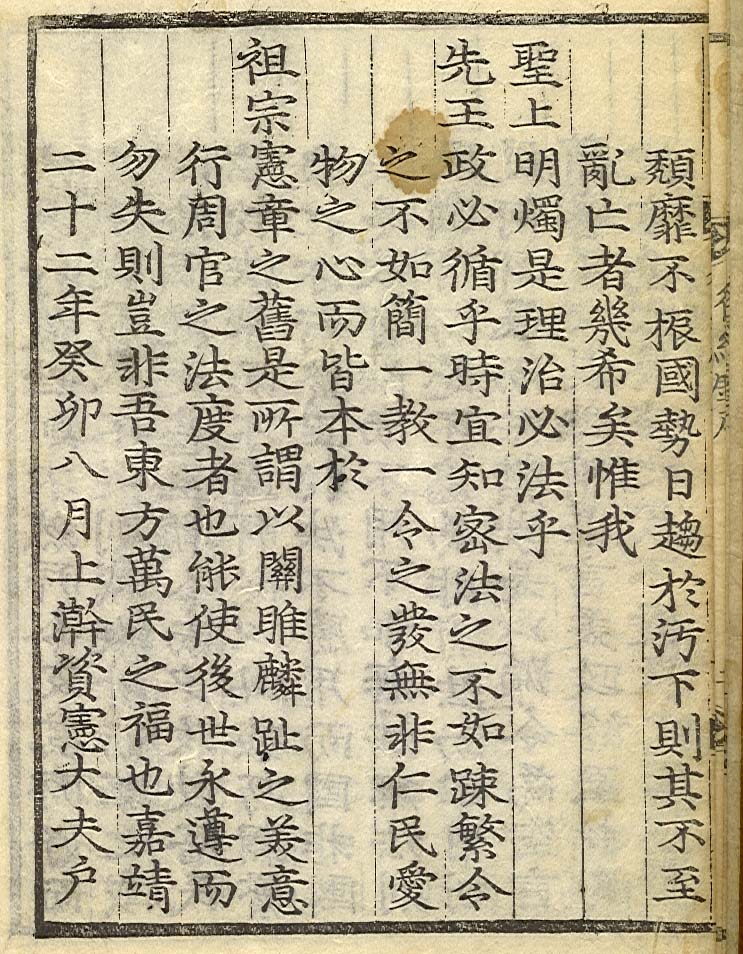 頹靡不振國勢日趨於汚下則其不至
亂亡者幾希矣惟我
聖上明燭是理治必法乎
先王政必循乎時宜知密法之不如踈繁令
之不如簡一敎一令之發無非仁民愛
物之心而皆本於
祖宗憲章之舊是所謂以關雎麟趾之美意
行周官之法度者也能使後世永遵而
勿失則豈非吾東方萬民之福也嘉靖
二十二年癸卯八月上澣資憲大夫户